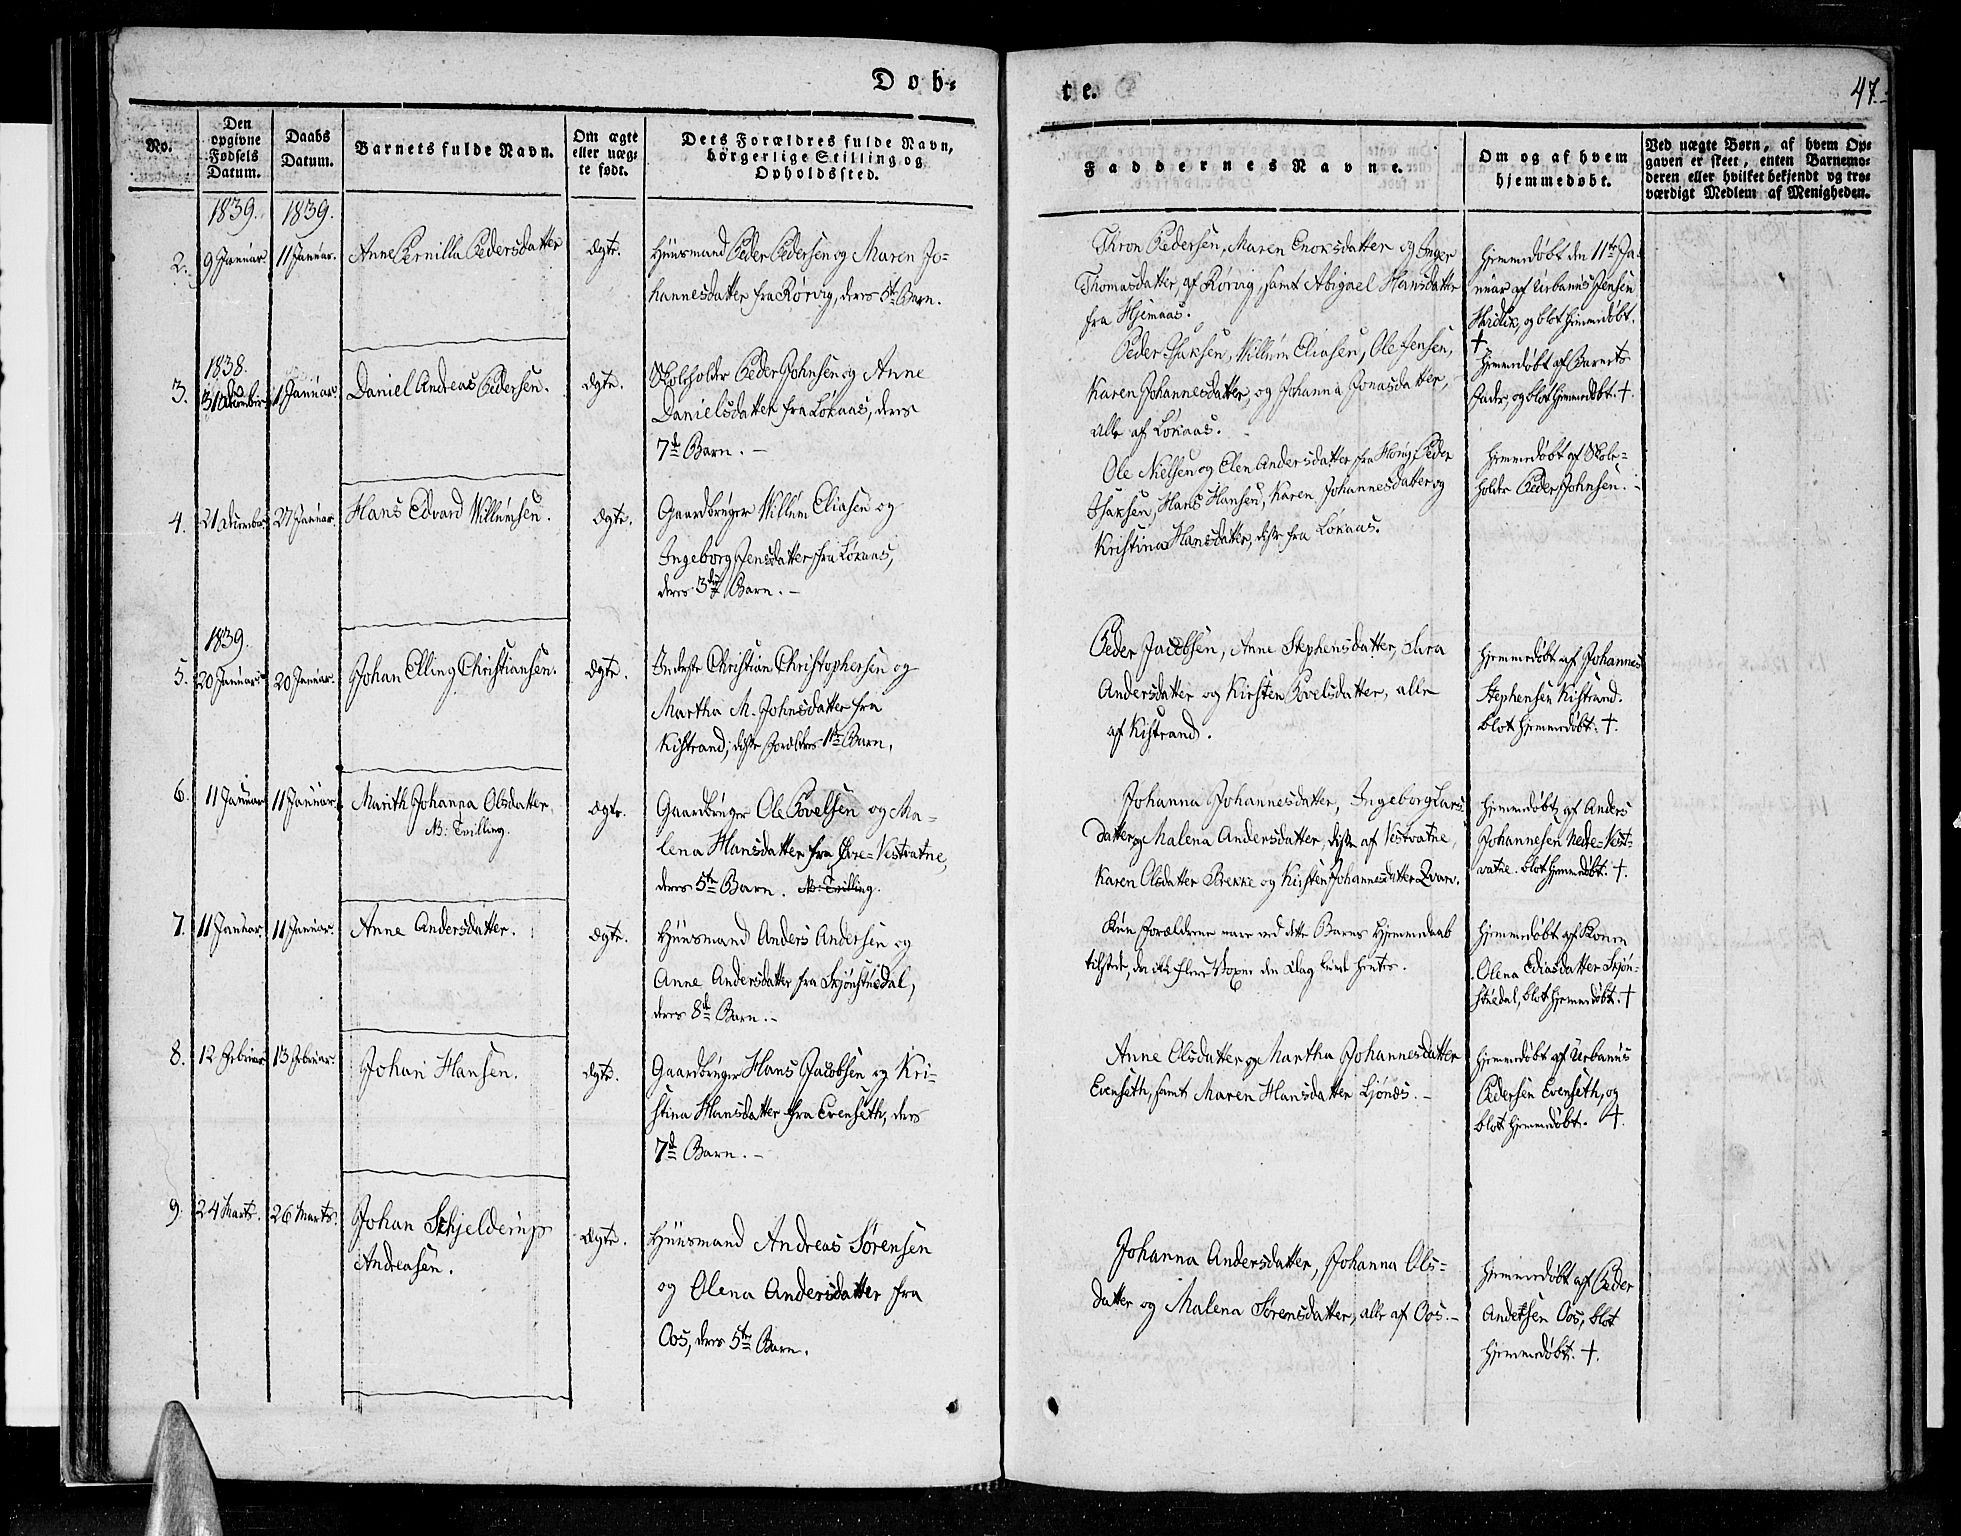 Dob-
te.
47.
No.
Den
opgivne
Fødsels
Datum.
Daabs
Datum.
Barnets fulde Navn.
Om ægte
eller uæg-
te født.
Dets Forældres fulde Navn,
borgerlige Stilling og
Opholdssted.
Faddernes Navne.
Om og af hvem
hjemmedøbt.
Ved uægte Børn, af hvem Op-
gaven er skeet, enten Barnemo-
deren eller hvilket bekjendt og tro-
værdigt Medlem af Menigheden.
1839. 1839.
2. 9 Januar 11 Januar. Anne Pernilla Pedersdatter Ægte.
Huusmand Peder Pedersen og Maren Jo-
hannesdatter fra Rørvig, deres 5te Barn.
Thron Pedersen, Maren Enoksdatter og Inger
Thomasdatter, af Rørvig, samt Abigael Hansdatter
fra Hjemaas.
Hjemmedøbt den 11te Ja-
nuar af Urbanus Jensen
og blot hjemmedøbt.
+
1838.
3. 31 December 1 Januar. Daniel Andreas Pedersen. Ægte.
Skolholder Peder Johnsen og Anne
Danielsdatter fra Løkaas, deres
7de Barn. –
Peder Isaksen, Willum Eliasen, Ole Jensen,
Karen Johannesdatter, og Johanna Jonasdatter,
alle af Løkaas.
Hjemmedøbt af Barnets
Fader, og blot hjemmedøbt. +.
4. 21 December 27 Januar. Hans Edvard Willumsen. Ægte.
Gaardbruger Willum Eliasen og
Ingeborg Jensdatter fra Løkaas,
deres 3die Barn. –
Ole Nielsen og Elen Andersdatter fra Peder
Isaksen, Hans Hansen, Karen Johannesdatter og
Kristina Hansdatter, disse fra Løkaas.
Hjemmedøbt af Skole-
holder Peder Johnsen. –
1839.
5. 20 Januar 20 Januar. Johan Elling Christiansen. Ægte.
Inderste Christian Christophersen og
Martha M. Johnsdatter fra
Kistrand, disse Forældres 1te Barn.
Peder Jacobsen, Anne Stephensdatter, Sara
Andersdatter og Kirsten Povelsdatter, alle
af Kistrand.
Hjemmedøbt af Johannes
Stephensen Kistrand.
blot hjemmedøbt. +.
6. 11 Januar 11 Januar. Marith Johanna Olsdatter. Ægte.
NB: Tvilling.
Gaardbruger Ole Povelsen og Ma-
lena Hansdatter fra Øvre-Vestvatne,
deres 5te Barn. NB: Tvilling.
Johanna Johannesdatter, Ingeborg Lars-
datter og Malena Andersdatter, disse af Vestvatne,
Karen Olsdatter Brekke og Kirsten Johannesdatter Qvarv.
Hjemmedøbt af Anders
Johannesen Nedre-Vest-
vatne. blot hjemmedøbt. +.
7. 11 Januar. 11 Januar. Anne Andersdatter. Ægte.
Huusmand Anders Andersen og
Anne Andersdatter fra Skjønstuedal,
deres 8de Barn. –
Kun Forældrene vare ved dette Barns Hjemmedaab
tilstede, da ikke flere Voxne den Dag kunde hentes.
Hjemmedøbt af Konen
Olena Eliasdatter Skjøn-
stuedal, blot hjemmedøbt. +
8. 12 Februar 13 Februar. Johan Hansen. Ægte.
Gaardbruger Hans Jacobsen og Kri-
stina Hansdatter fra Evenseth, deres
7de Barn. –
Anne Olsdatter og Martha Johannesdatter
Evenseth, samt Maren Hansdatter Ljønes. –
Hjemmedøbt af Urbanus
Pedersen Evenseth, og
blot hjemmedøbt. +.
9. 24 Marts. 26 Marts. Johan Schjelderup
Andreasen. Ægte.
Huusmand Andreas Sørensen
og Olena Andersdatter fra
Oos, deres 5te Barn.
Johanna Andersdatter, Johanna Ols-
datter og Malena Sørensdatter, alle af Oos. –
Hjemmedøbt af Peder
Andersen Oos, blot
hjemmedøbt. +.